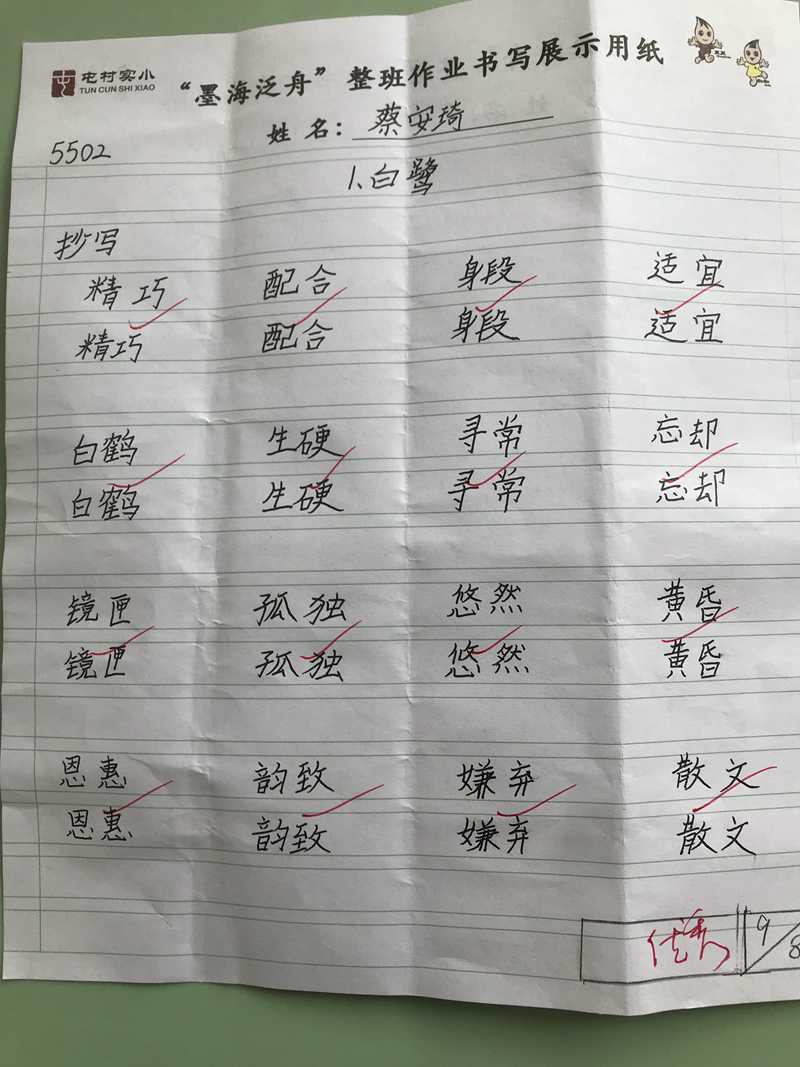 屯村实小
TUN CUN SHI XIAO
“墨海泛舟”整班作业书写展示用纸
姓 名：蔡安琦
5502
1、白鹭
抄写
精巧 配合 身段 适宜
精巧 配合 身段 适宜
白鹤 生硬 寻常 忘却
白鹤 生硬 寻常 忘却
镜匣 孤独 悠然 黄昏
镜匣 孤独 悠然 黄昏
恩惠 韵致 嫌弃 散文
恩惠 韵致 嫌弃 散文
优秀 9/8